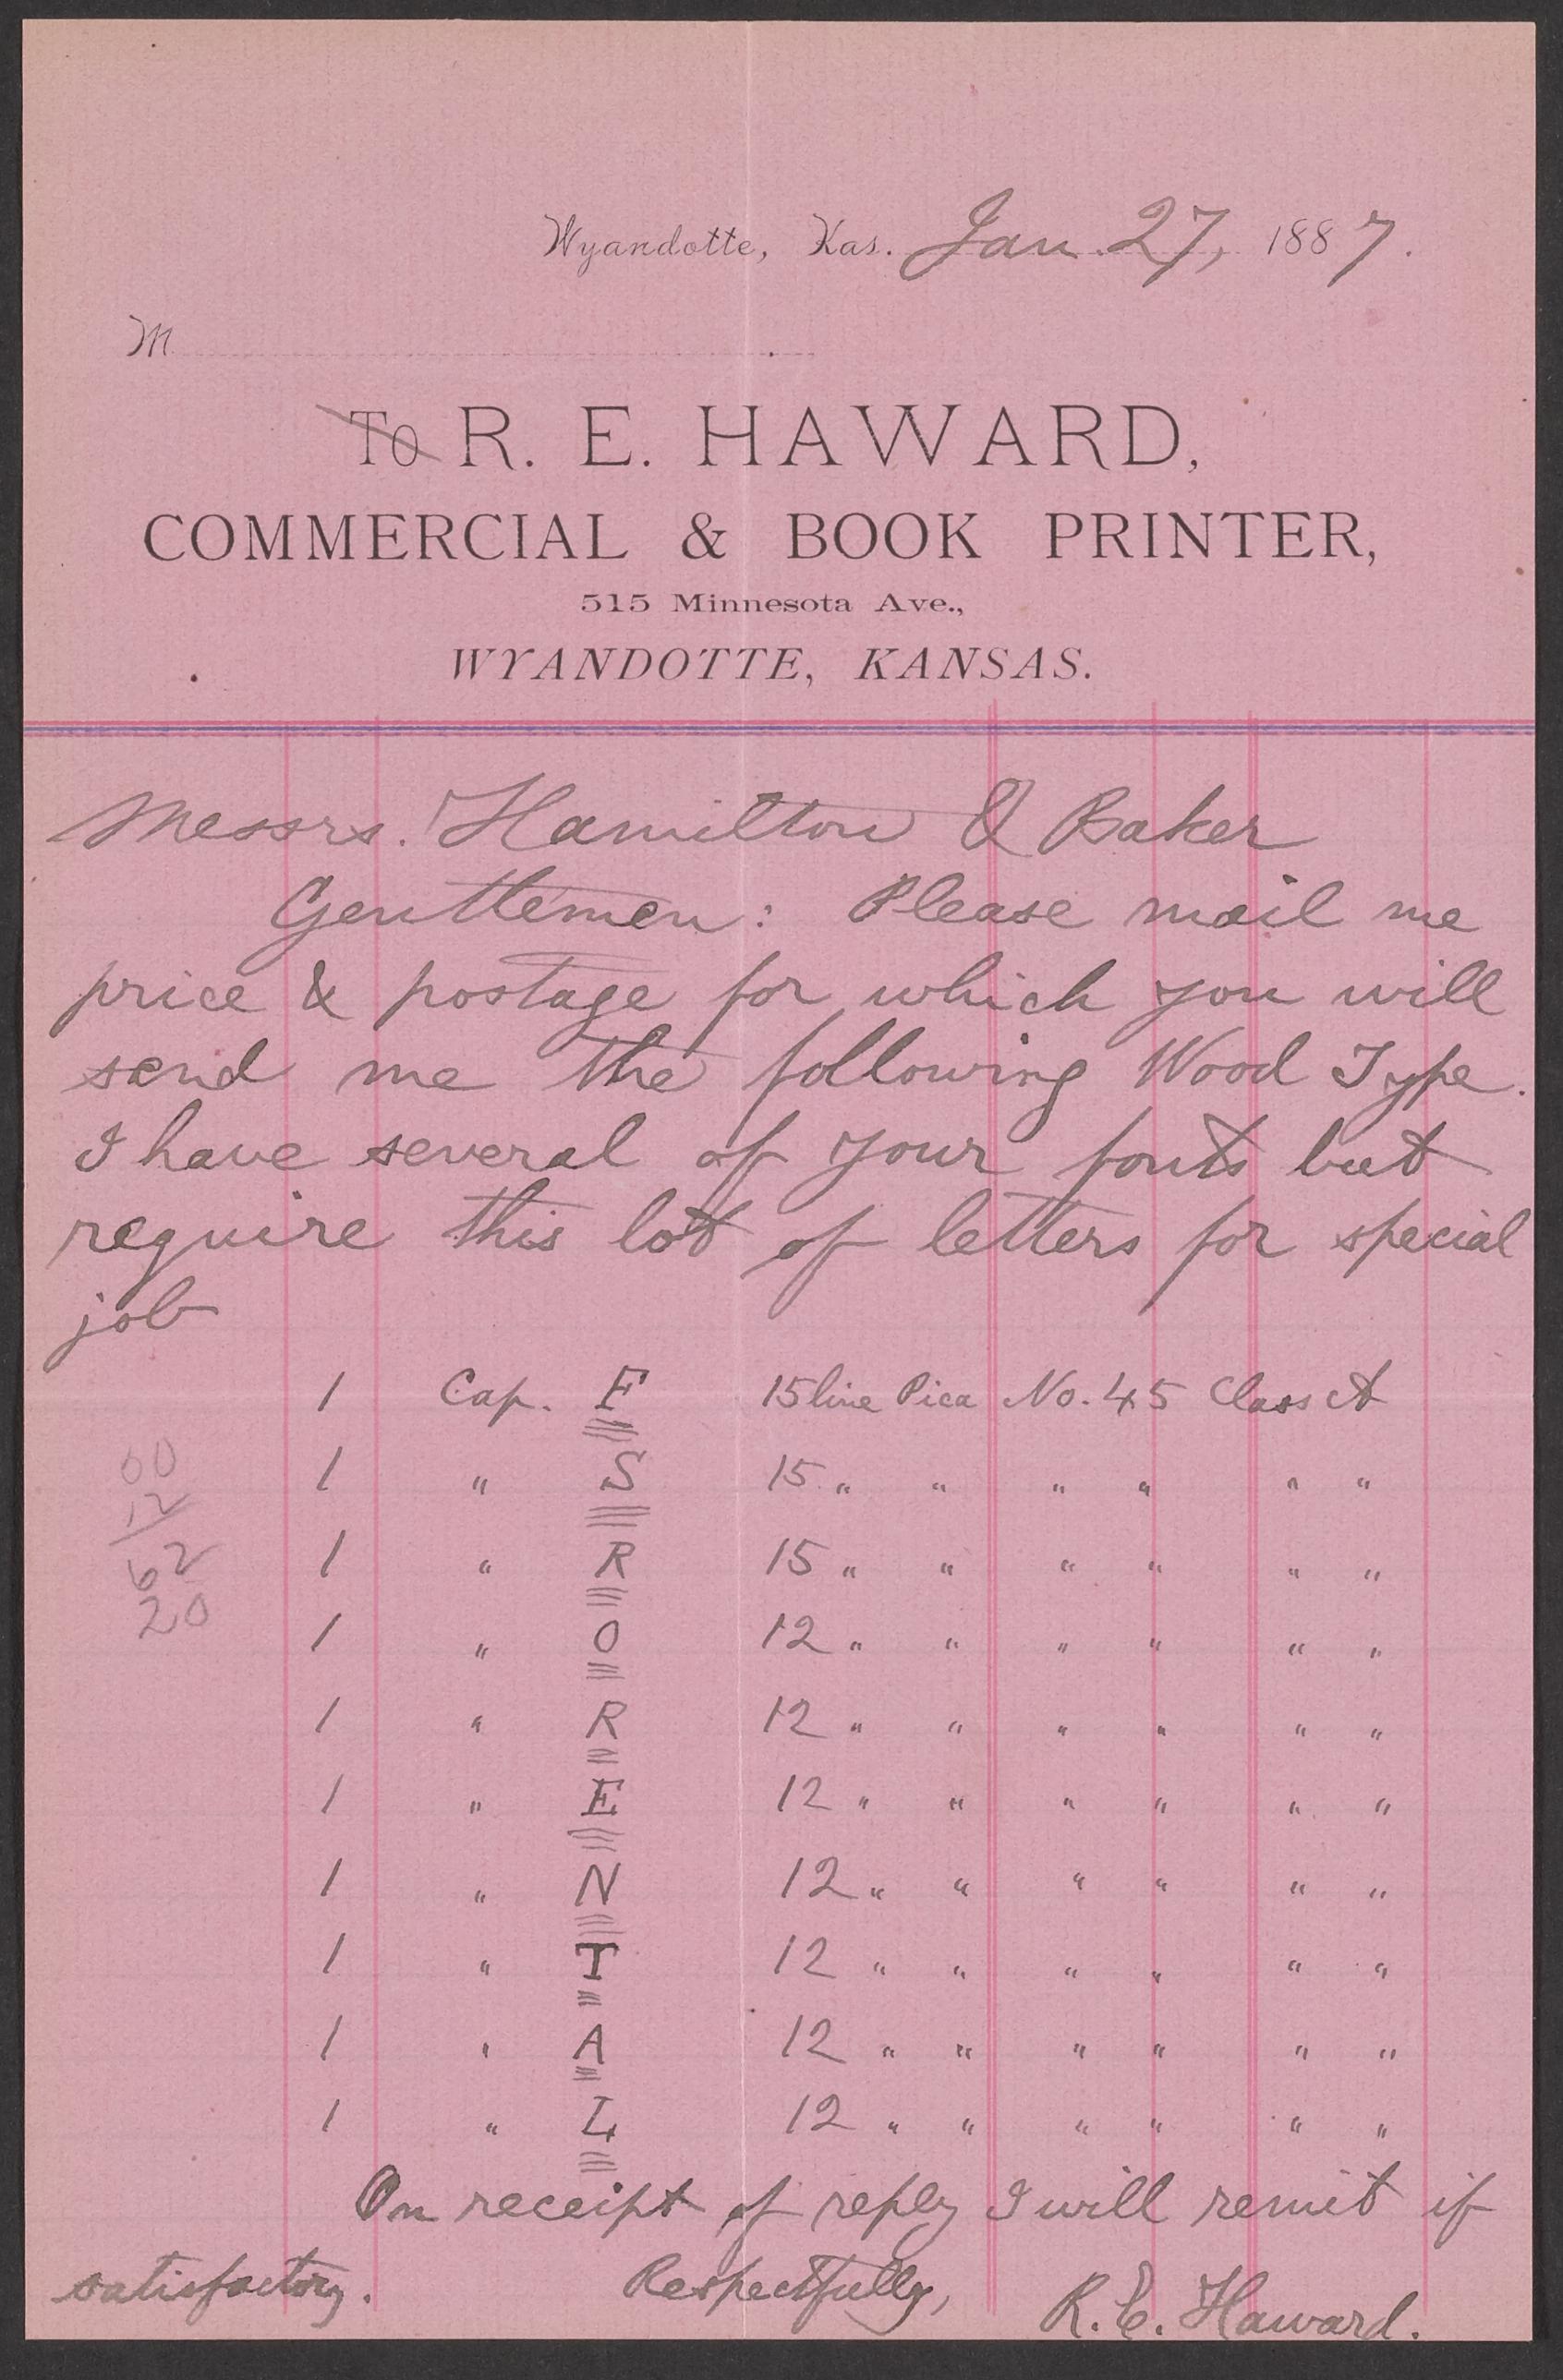 Wyandotte, Kas. Jan. 27, 1887.
M
To R. E. HAWARD,
COMMERCIAL & BOOK PRINTER,
515 Minnesota Ave.,
WYANDOTTE, KANSAS.
Messrs. Hamilton & Baker
Gentlemen: Please mail me
price & postage for which you will
send me the following Wood Type.
I have several of your fonts but
require this lot of letters for special
job
1 Cap. F 15 line Pica No. 45 Class A
1 " S 15 " " " " " "
1 " R 15 " " " " " "
1 " O 12 " " " " " "
1 " R 12 " " " " " "
1 " E 12 " " " " " "
1 " N 12 " " " " " "
1 " T 12 " " " " " "
1 " A 12 " " " " " "
1 " L 12 " " " " " "
12
62
20
On receipt of reply I will remit if
satisfactory. Respectfully, R. E. Haward.